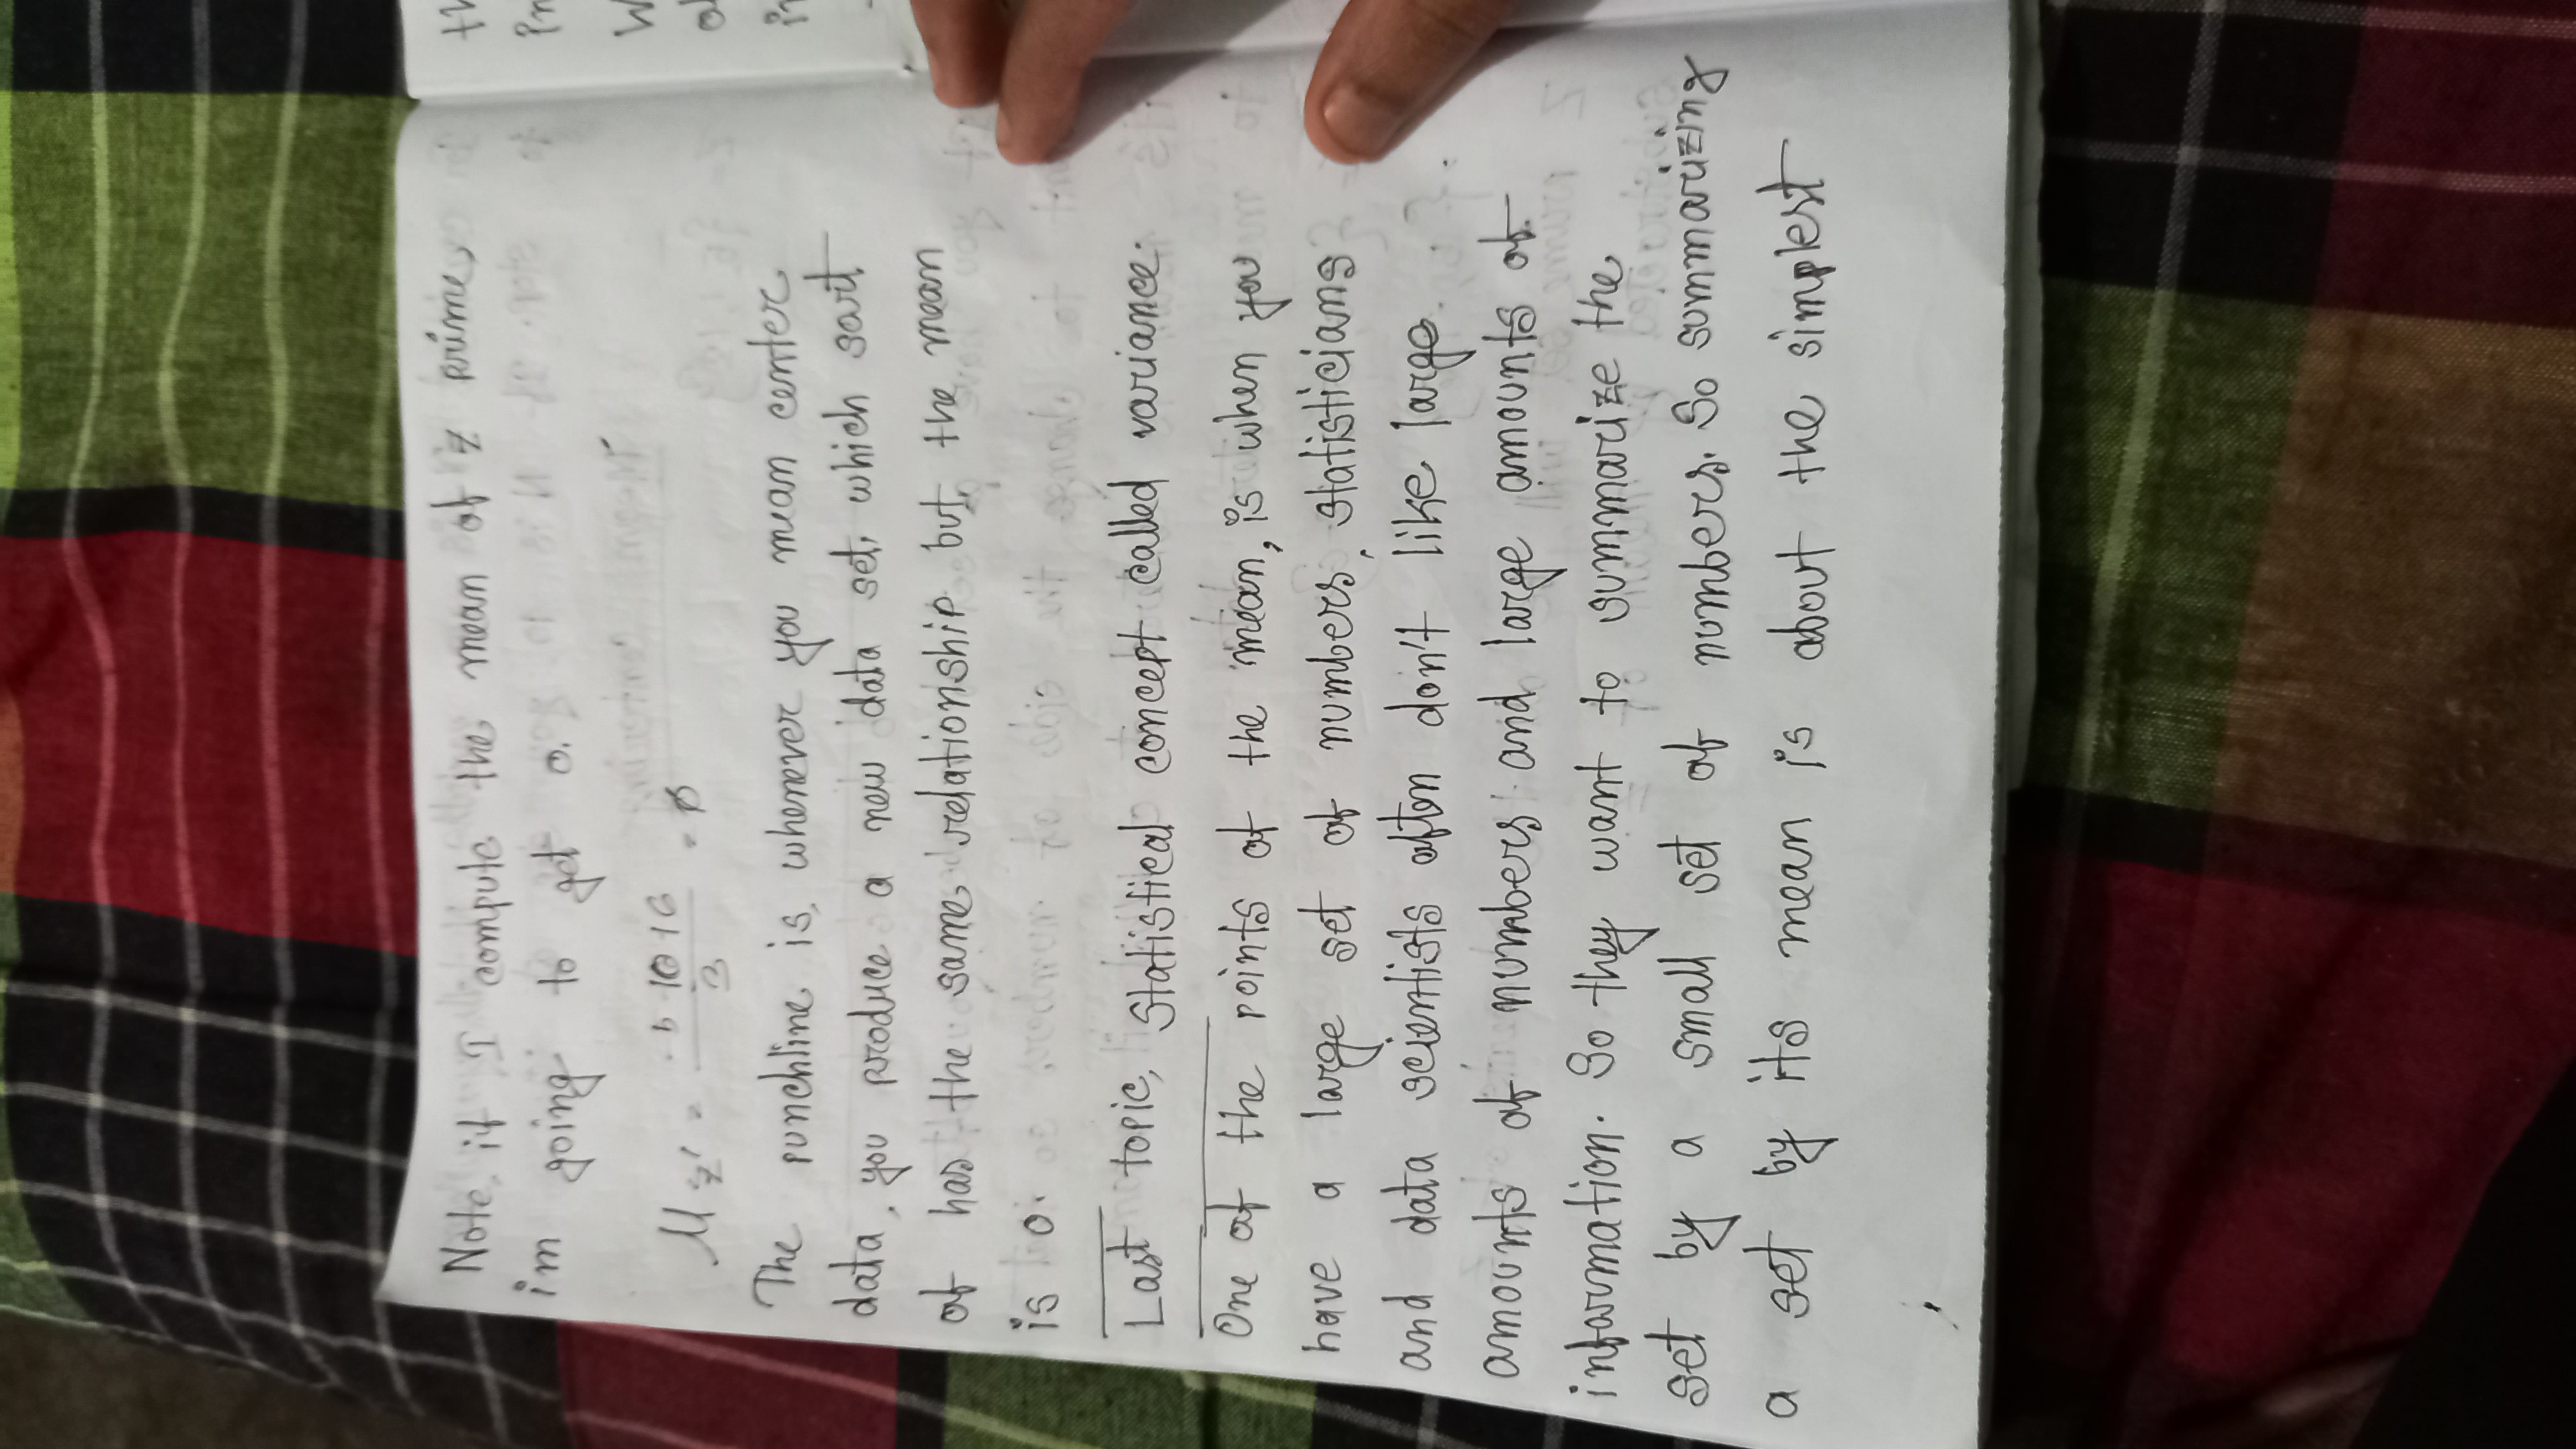 Note, if I compute the mean of z prime,
im going to get 0.
μ z' =
3
The punchline is, whenever you mean center
data, you produce a new data set, which sort
of has the same relationship but, the mean
is 0.
Last topic, Statistical concept called variance.
One of the points of the mean, is when you
have a large set of numbers, statisticians
and data scientists often don't like large
amounts of numbers and large amounts of
information. So they want to summarize the
set by a small set of numbers. So summarizing
a set by its mean is about the simplest
th
Pr
W
of
in